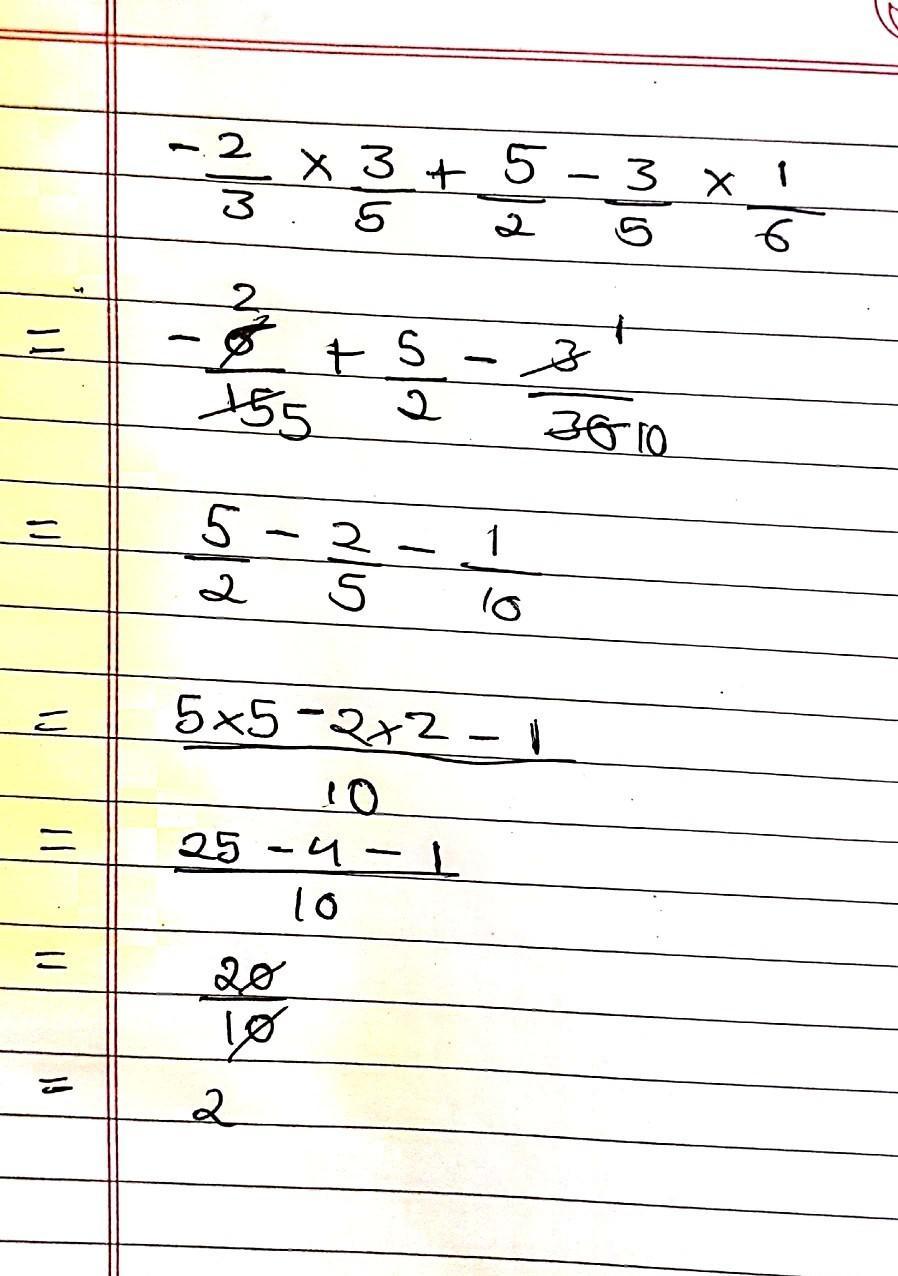 -2/3 × 3/5 + 5/2 - 3/5 × 1/6
= -6̶ 2/1̶5̶ 5 + 5/2 - 3̶ 1/3̶0̶ 10
= 5/2 - 2/5 - 1/10
= 5×5 - 2×2 - 1/10
= 25 - 4 - 1/10
= 20̶/10̶
= 2